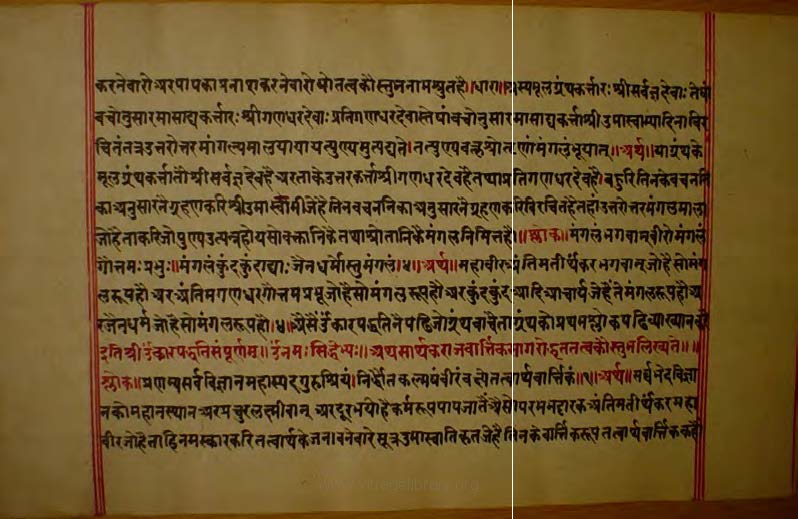 करनेवारो अर पापका प्रनाशकरनेवारो श्री तत्वकौस्तुभनाम श्रुत है॥ धारा॥ अस्य मूलग्रंथकर्त्तारः श्रीसर्वज्ञदेवाः तेषां
वचोनुसारमासाद्य कर्त्तारः श्रीगणधरदेवाः प्रतिगणधरदेवास्तेषां वचोनुसारमासाद्य कर्त्ता श्रीउमास्वाम्यादिनाविर
चितं तत्र उत्तरोत्तरमांगल्यमालयायायत्पुण्यमुत्पद्यते। तत्पुण्यं वक्तृश्रोतॄणां मंगलं भूयात्॥ अर्थ॥ या ग्रंथके
मूलग्रंथकर्त्ता तो श्रीसर्वज्ञदेव है अर ताके उत्तरकर्त्ता श्रीगणधरदेव है तथा प्रतिगणधरदेव है। बहुरि तिनके वचनति
का अनुसारने ग्रहणकरि श्रीउमास्वामी जे है तिन वचननिका अनुसारने ग्रहणकरि विरचित है तहां उत्तरोत्तरमंगलमाला
जो है ताकरि जो पुण्य उत्पन्न होय सो वक्तानिकै तथा श्रोतानिकै मंगलनिमित्त हो॥ श्लोक॥ मंगलं भगवान्वीरो मंगलं
गौत्तमः प्रभुः॥ मंगलं कुंदकुंदाद्याः जैनधर्मोस्तु मंगलं। ५॥ अर्थ॥ महावीर अंतिमतीर्थंकर भगवान् जो है सो मंग
लरूप हो अर अंतिमगणधर गौत्तमप्रभू जो है सो मंगलरूप हो अर कुंदकुंद आदि आचार्य जे है ते मंगलरूप हो अ
र जैनधर्म जो है सो मंगलरूप हो। ५॥ ऐसैं ॐकारपद्धतिने पढि जो ग्रंथ वाचै ता ग्रंथको प्रथमश्लोक पढि व्याख्यान करै
इति श्री ॐकारपद्धति संपूर्णम्॥ ॐ नमः सिद्धेभ्यः॥ अथ सार्थक राजवार्त्तिकसागरोद्धृततत्वकौस्तुभ लिख्यते॥॥
श्लोक॥ प्रणम्य सर्वविज्ञानमहास्पदगुरुश्रियं। निर्द्धौतकल्मषं वीरं वक्ष्ये तत्वार्थवार्त्तिकं॥१॥ अर्थ॥ सर्वभेद विज्ञा
नको महानस्थान अर प्रचुरलक्ष्मीवान् अर दूर भयो है कर्मरूप पाप जातै ऐसो परमभट्टारक अंतिमतीर्थंकर महा
वीर जो है ताहि नमस्कारकरि तत्वार्थके जनावनेवारे सूत्र उमास्वातिकृत जे है तिनके वार्त्तिकरूप तत्वार्थवार्त्तिक कहै